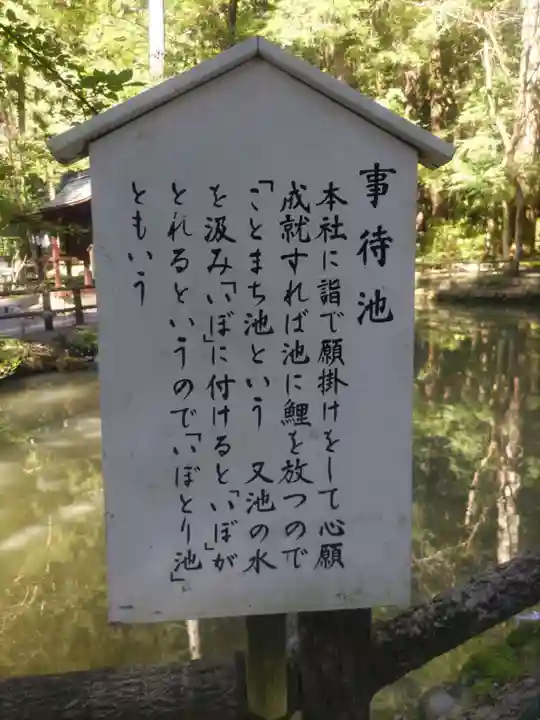 事待池
本社に詣で願掛けをして心願
成就すれば池に鯉を放つので
「ことまち池という　又池の水
を汲み「いぼ」に付けると「いぼ」が
とれるというので「いぼとり池」
ともいう